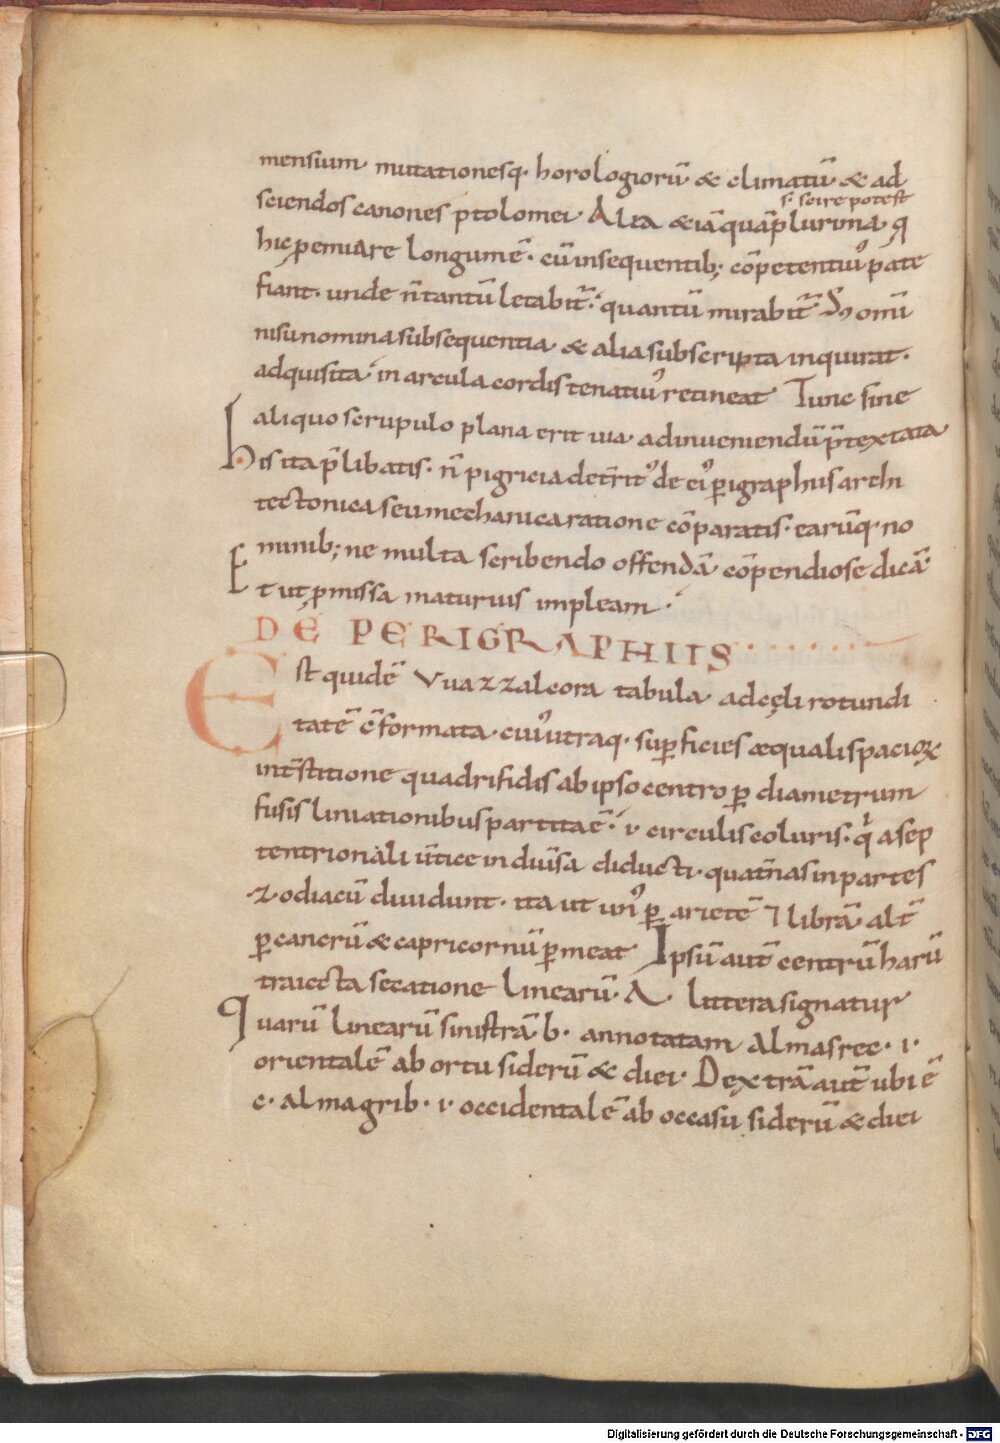 mensium mutationesq· horologiorū & climatū· & ad
s· scire potest
sciendos canones ptolomei· Alia &iā quāplurima q̧
hic p̱emiare longum ē· cū insequentib; cōpetentiuˀ pate
fiant· unde n̄ tantū letabit̄· quantū mirabit̄ Homū
nisu nomina subsequentia & alia subscripta inquirat·
adquisita in arcula cordis tenatiuˀ retineat Tunc sine
aliquo scrupulo plana erit uia ad inueniendū p̄textata
His ita p̄libatis· n̄ pigricia det̄ritˀ de eiˀ ꝑigraphus archi
tectonica seu mechanica ratione cōparatis· earūq· no
minib; ne multa scribendo offendā cōpendiose dicā·
Et ut p̱missa maturius impleam·
DE PERIGRAPHIIS
Est quidē Vuazzalcora tabula ad cęli rotundi
tatē c̄formata· cuiˀ utraq· suꝑficies æquali spacioꝝ
int̄stitione quadrifidis ab ipso centro ꝑ diametrum
fusis liniationibus partita ē· ·i· circulis coluris· qͥ a sep
tentrionali ūtice in diūsa diducti· quat̄nas in partes
zodiacū diuidunt· ita ut unˀ ꝑ arietē ⁊ librā alt̄
ꝑ cancrū & capricornū ꝑmeat Ipsū aut̄ centrū harū
traiecta secatione linearū· A· littera signatur
Quarū linearū sinistrā b· annotatam Almasrec· ·i·
orientalē ab ortu siderū & diei· Dextrā aut̄ ubi ē
c· almagrib· ·i· occidentalē ab occasu siderū & diei
Digitalisierung gefördert durch die Deutsche Forschungsgemeinschaft - DFG